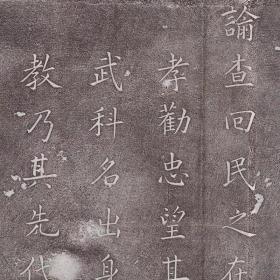 諭查回民之在
孝勸忠望其
武科名出身
教乃其先代